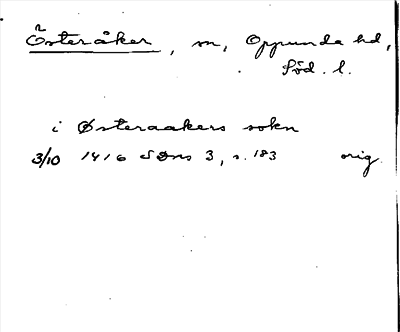 Österåker, sn, Oppunda hd,
Söd. l.
i Østeraakers sokn
3/10 1416 SDns 3, s. 183 orig.